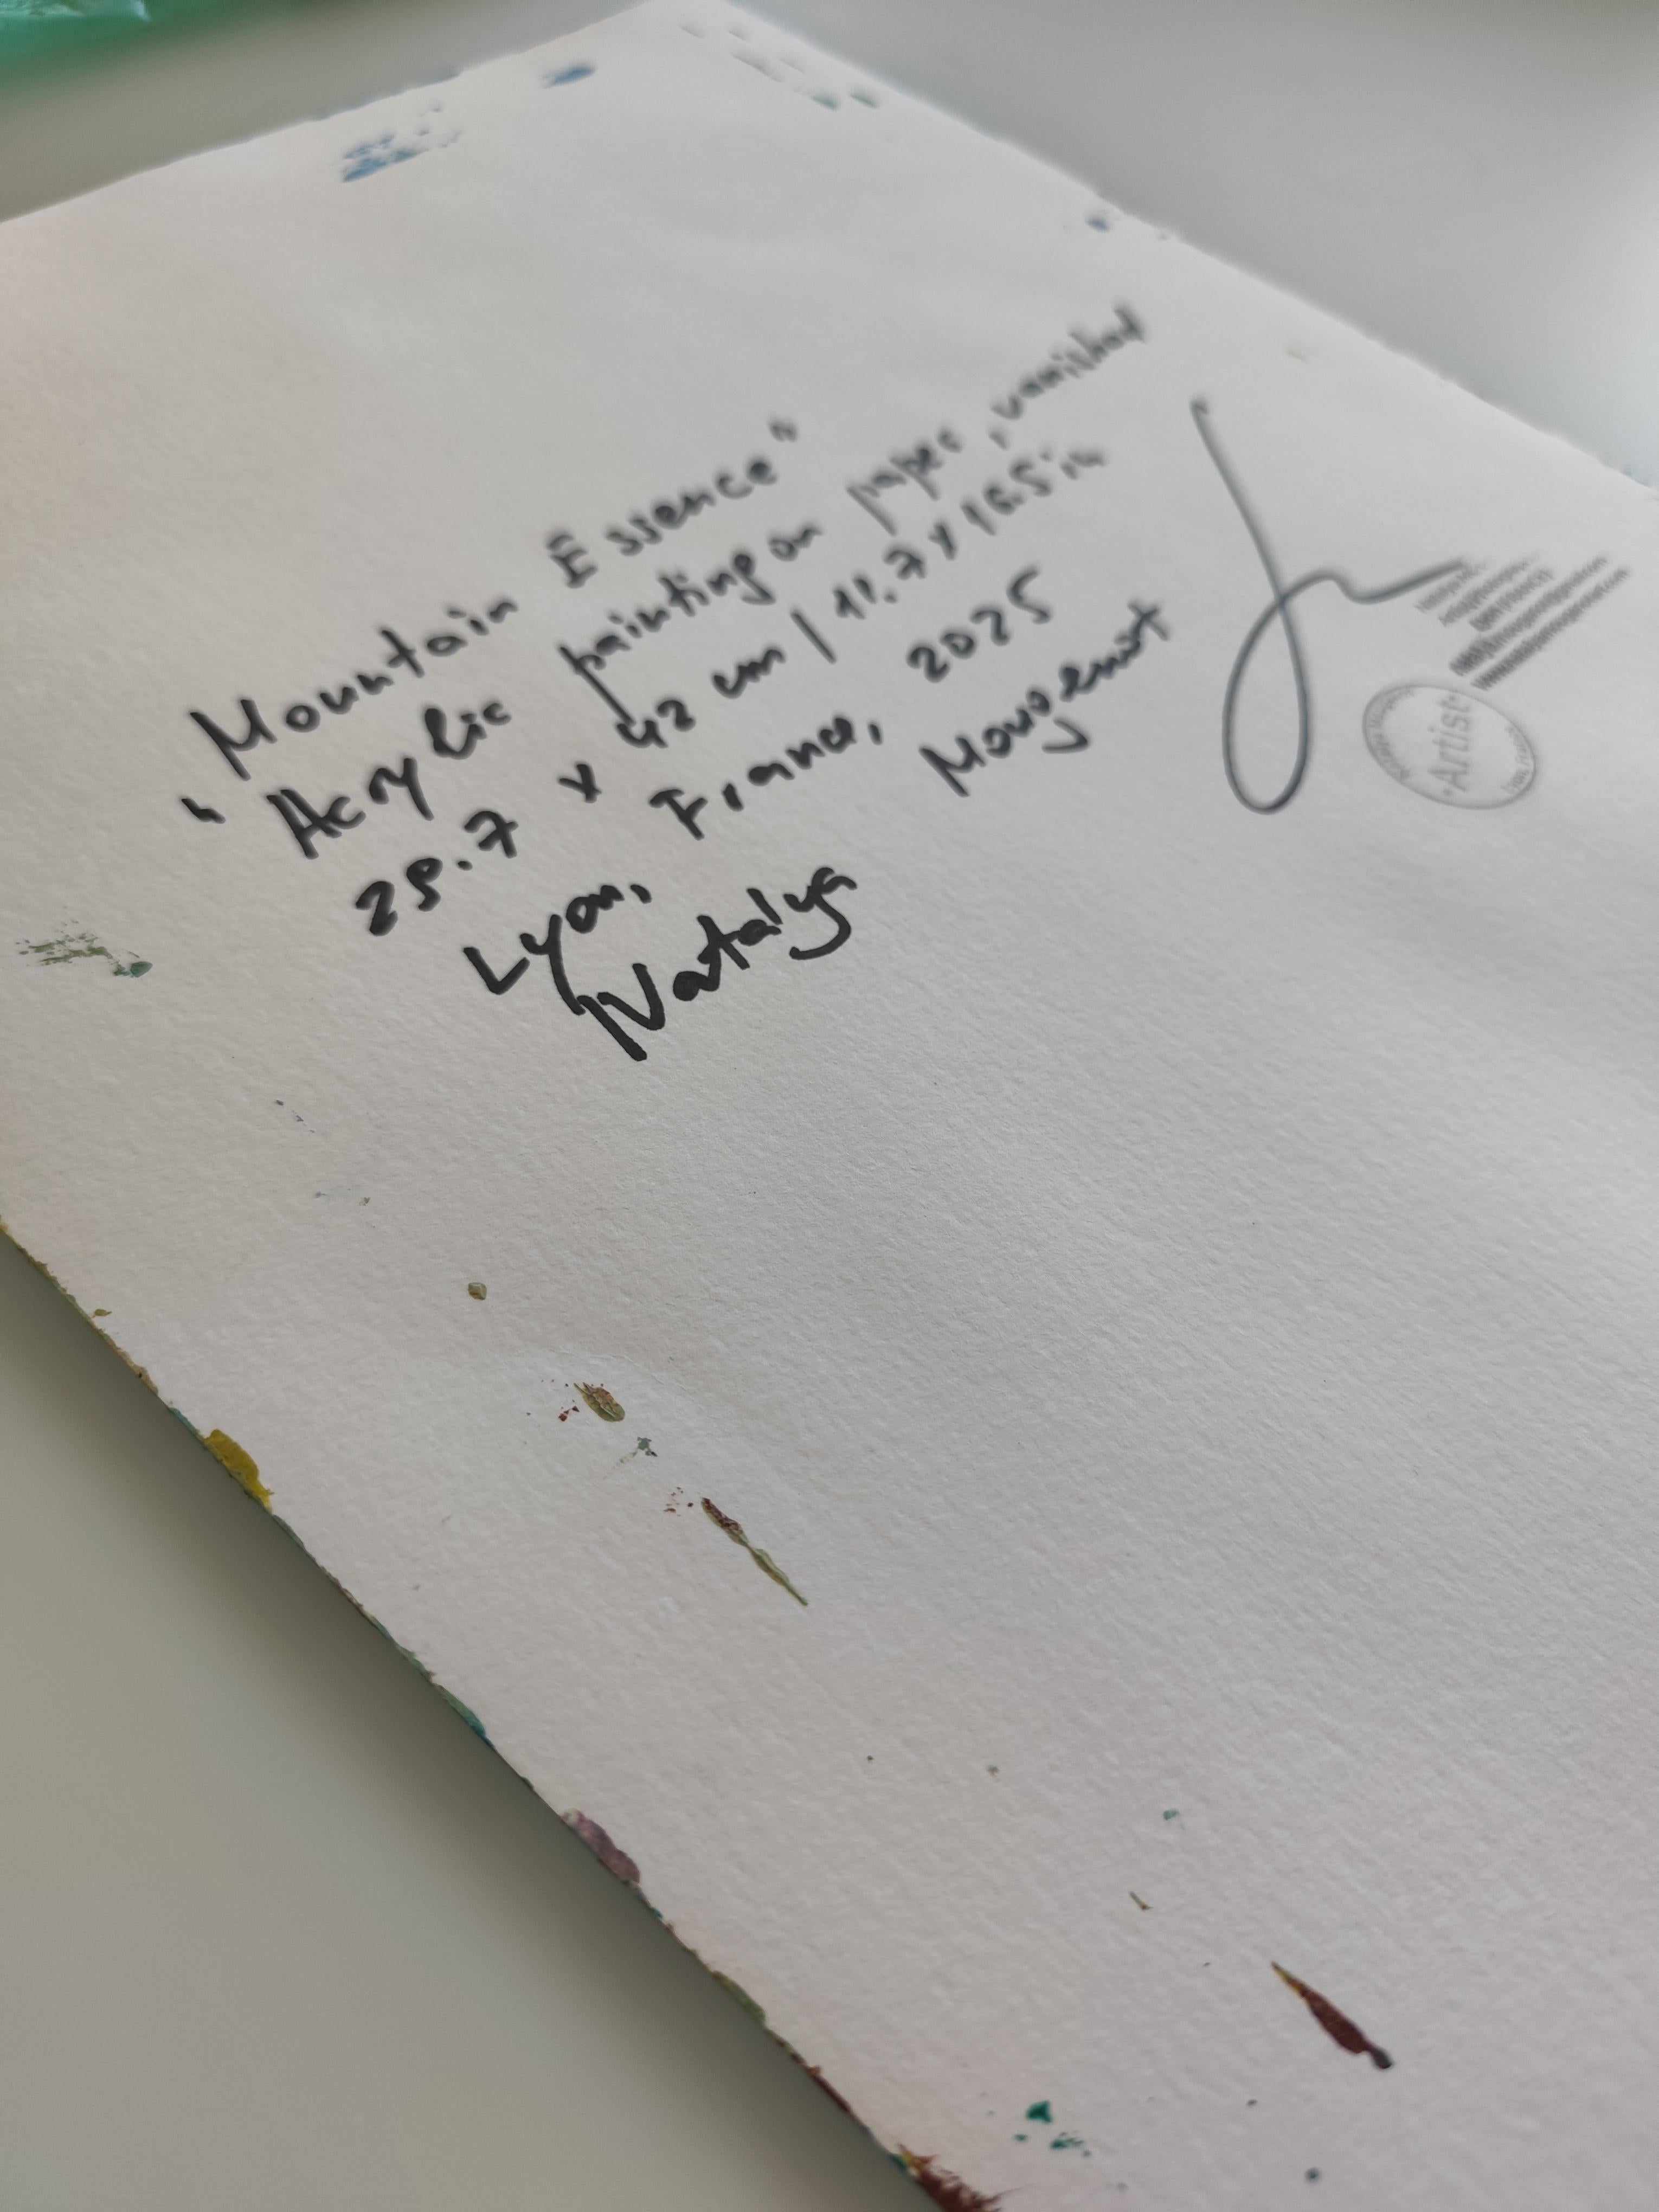 "Mountain Essence"
Acrylic painting on paper, varnished
29.7 x 42 cm / 11.7 x 16.5 in
Lyon, France, 2025
Natalya Mougenot
• Artist •